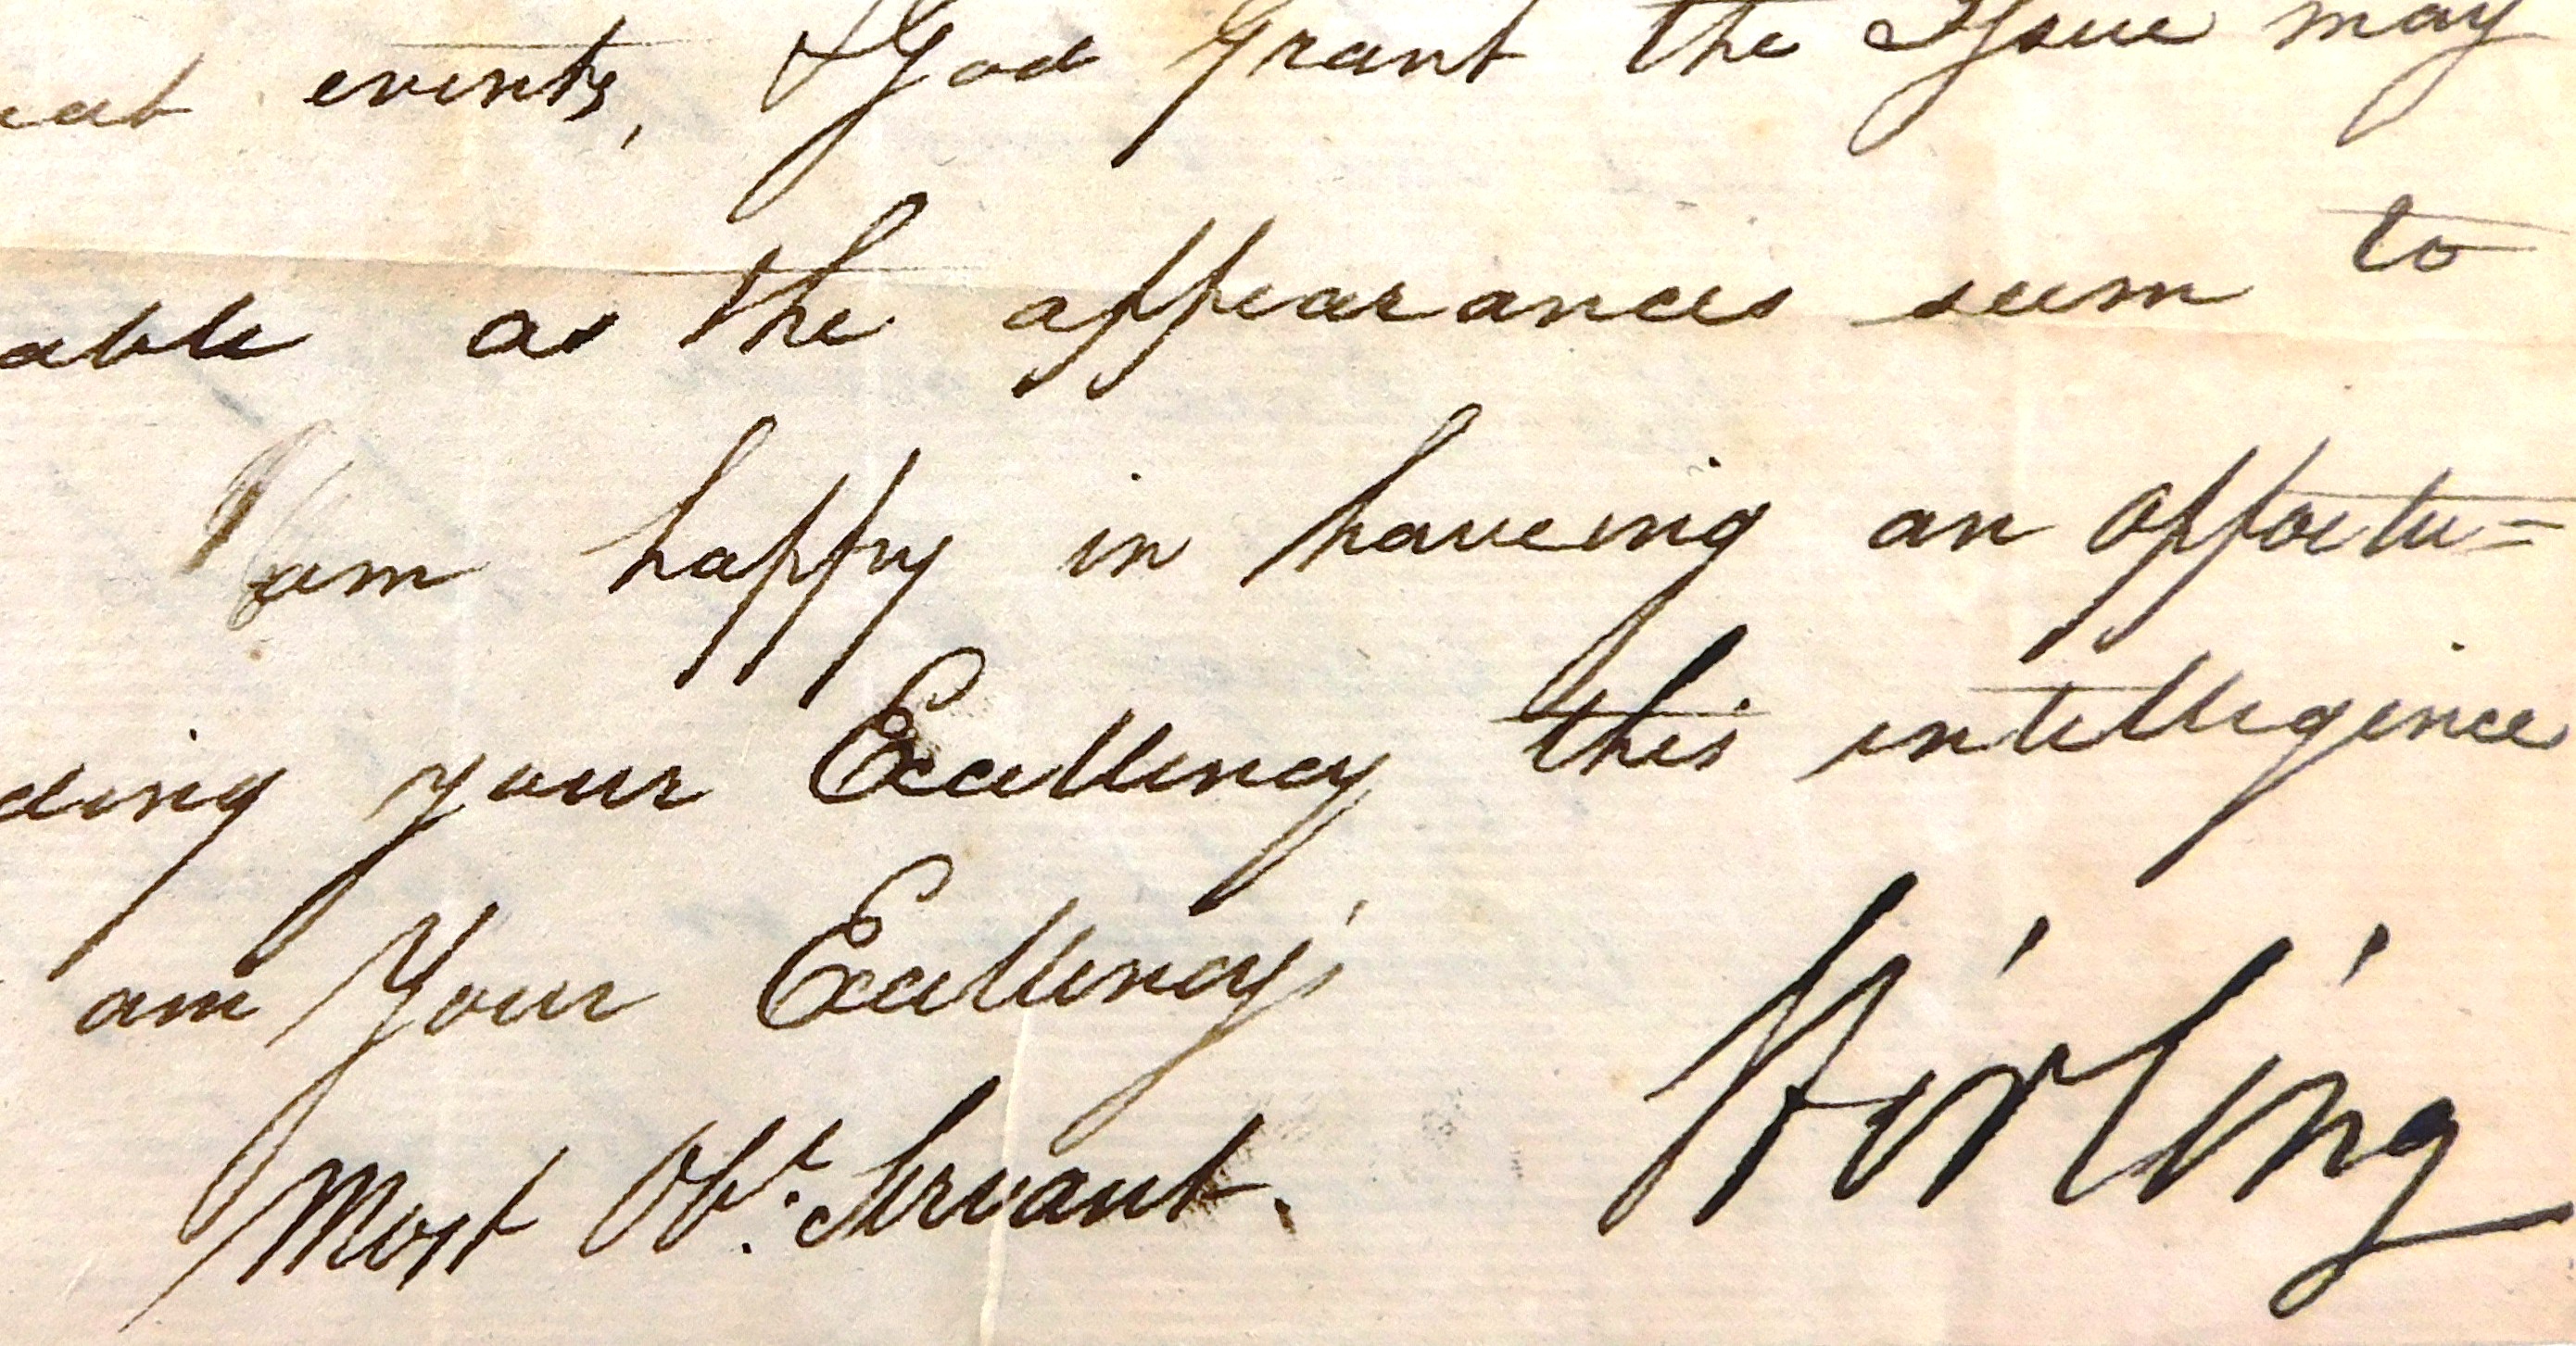 eat events, & God grant the Issue may
able as the appearances seem to
I am happy in haveing an opportu=
ding your Excellency this intelligence
am Your Excellencys
Most Obt. Servant.
Stirling